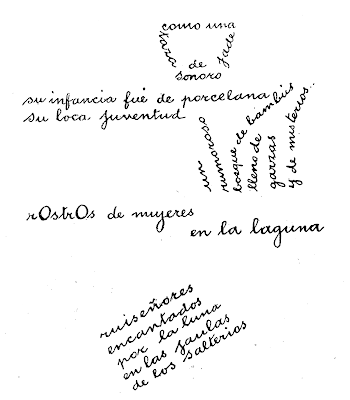 como una
taza
de
jade
sonoro
su infancia fué de porcelana
su loca juventud
un
rumoroso
bosque de bambús
lleno de
garzas
y de misterios..
rOstrOs de mujeres
en la laguna
ruiseñores
encantados
por la luna
en las jaulas
de los salterios